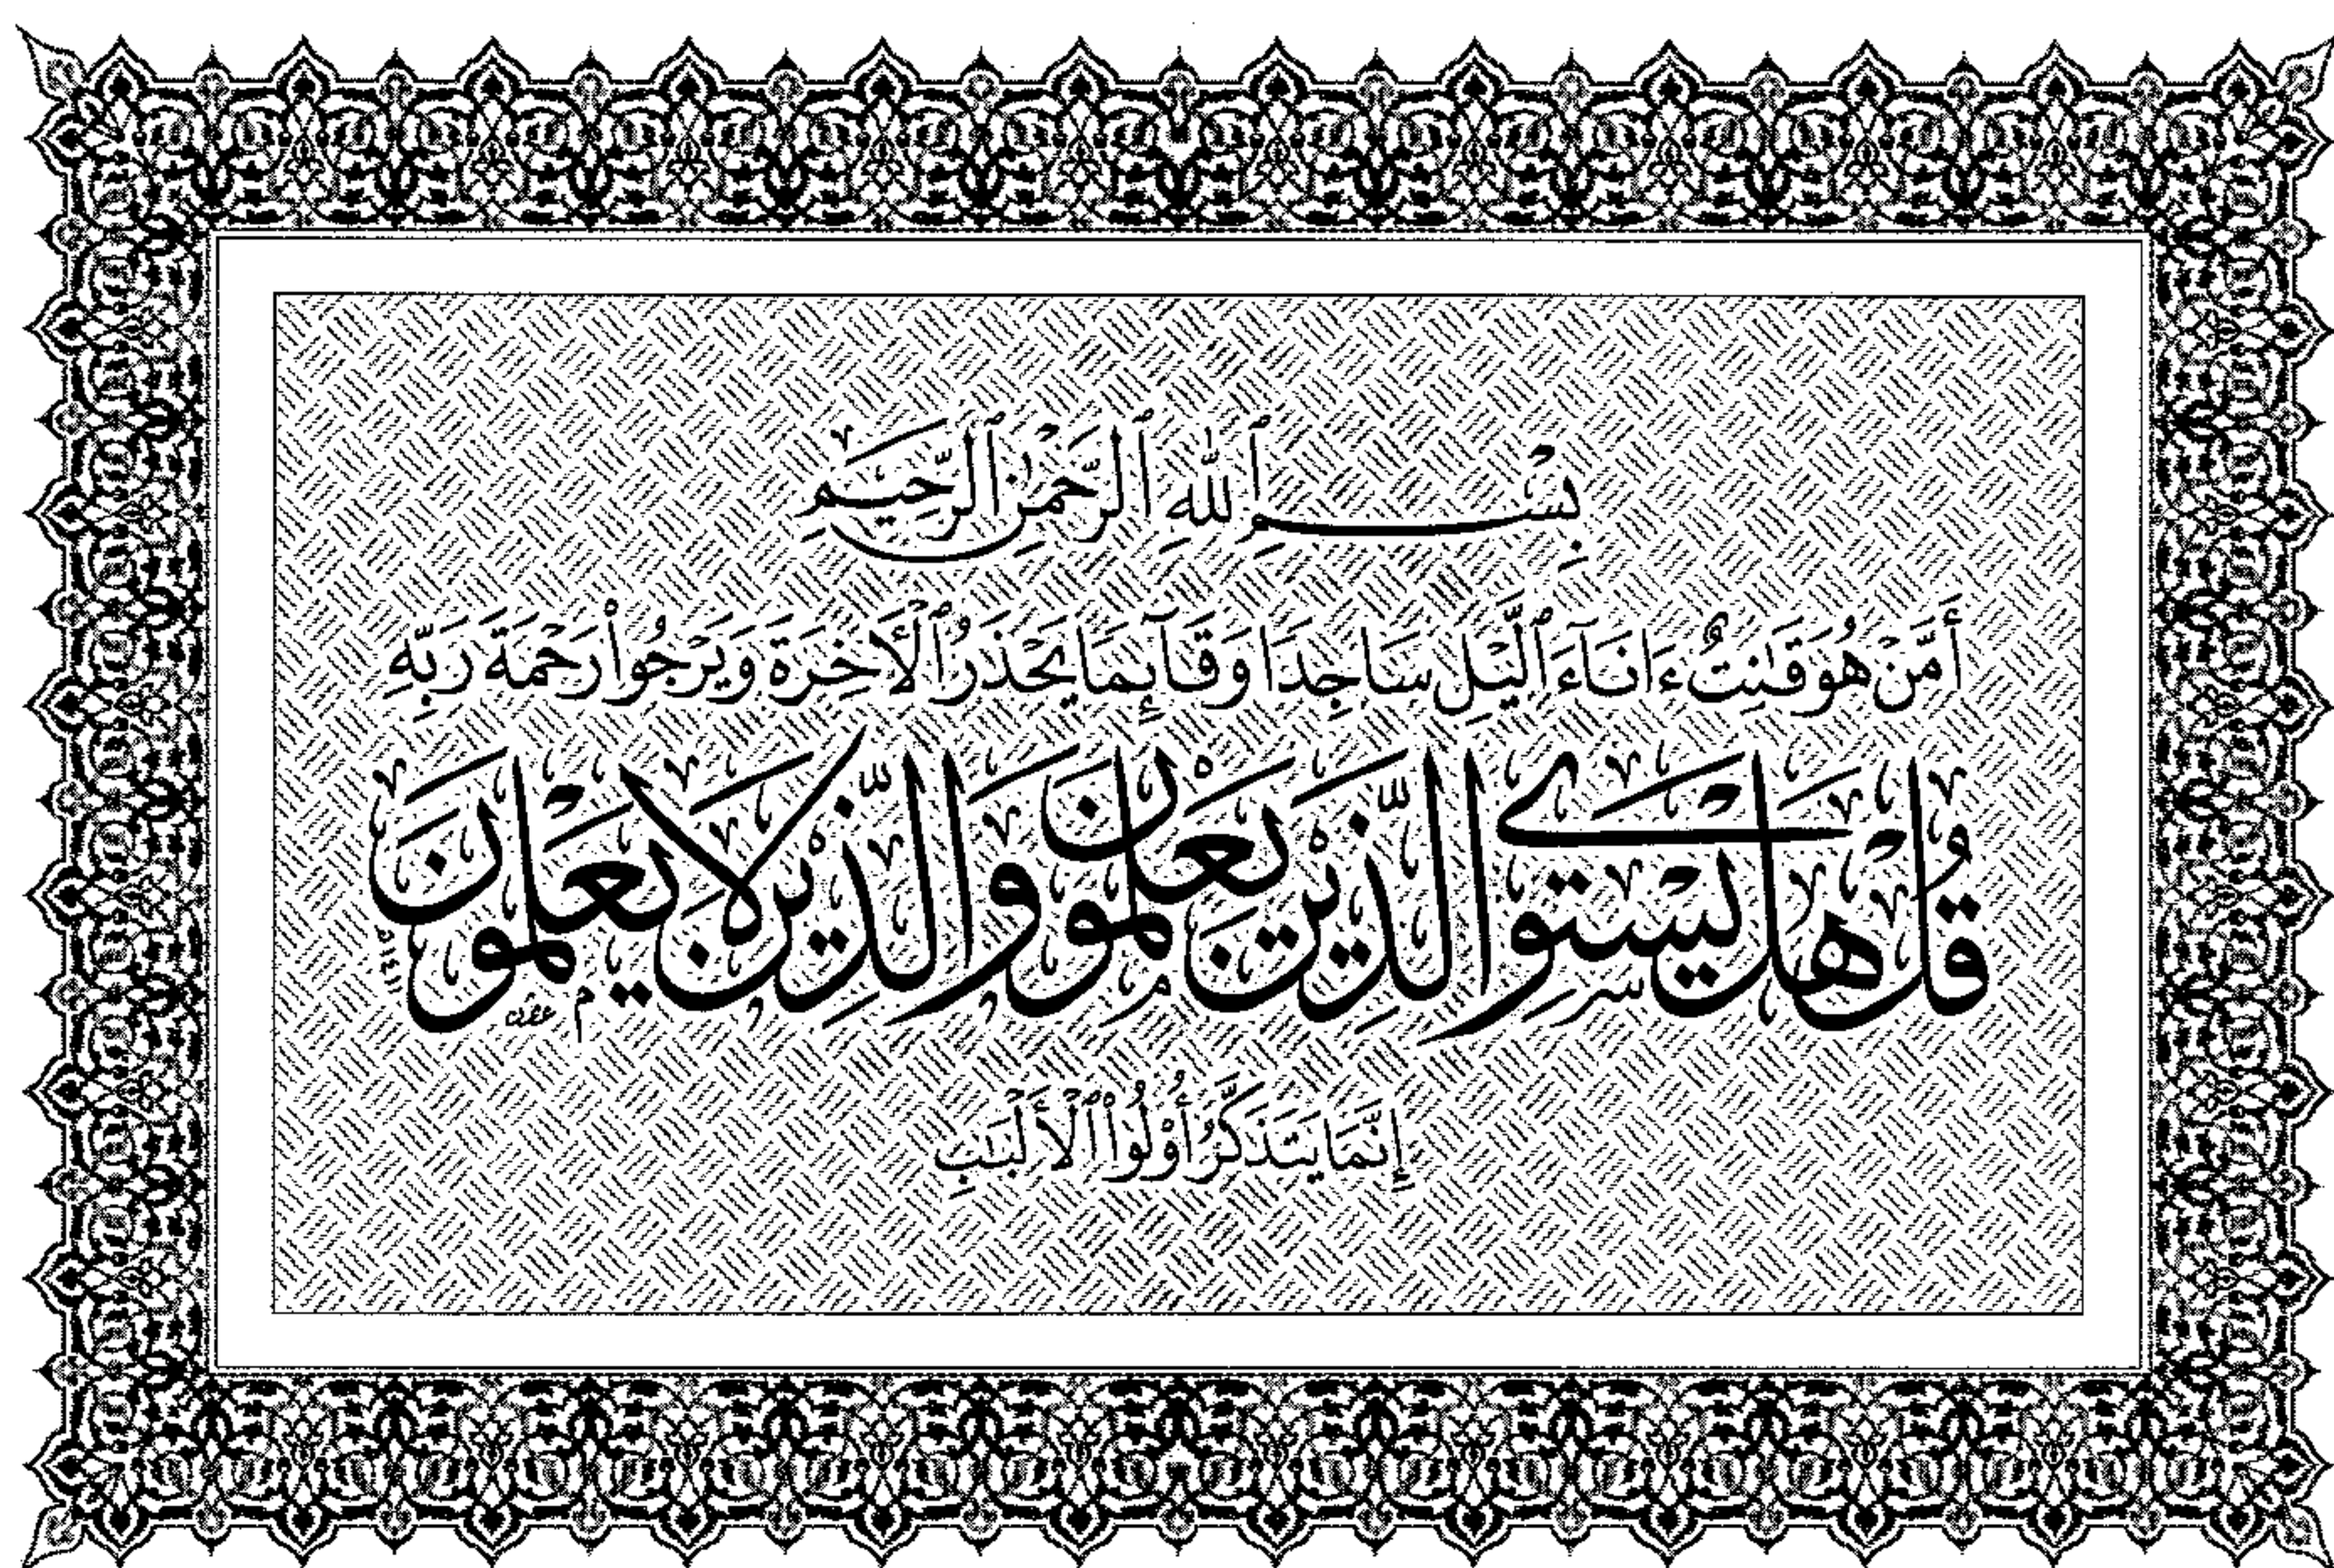 بِسْمِ ٱللَّهِ ٱلرَّحْمَٰنِ ٱلرَّحِيمِ
أَمَّنْ هُوَ قَٰنِتٌ ءَانَآءَ ٱلَّيْلِ سَاجِدًا وَقَآئِمًا يَحْذَرُ ٱلْأَخِرَةَ وَيَرْجُوا۟ رَحْمَةَ رَبِّهِ
قُلْ هَلْ يَسْتَوِى الَّذِيْنَ يَعْلَمُوْنَ وَالَّذِيْنَ لَا يَعْلَمُوْنَ
١٤١١ه
إِنَّمَا يَتَذَكَّرُ أُو۟لُوا۟ ٱلْأَلْبَٰبِ